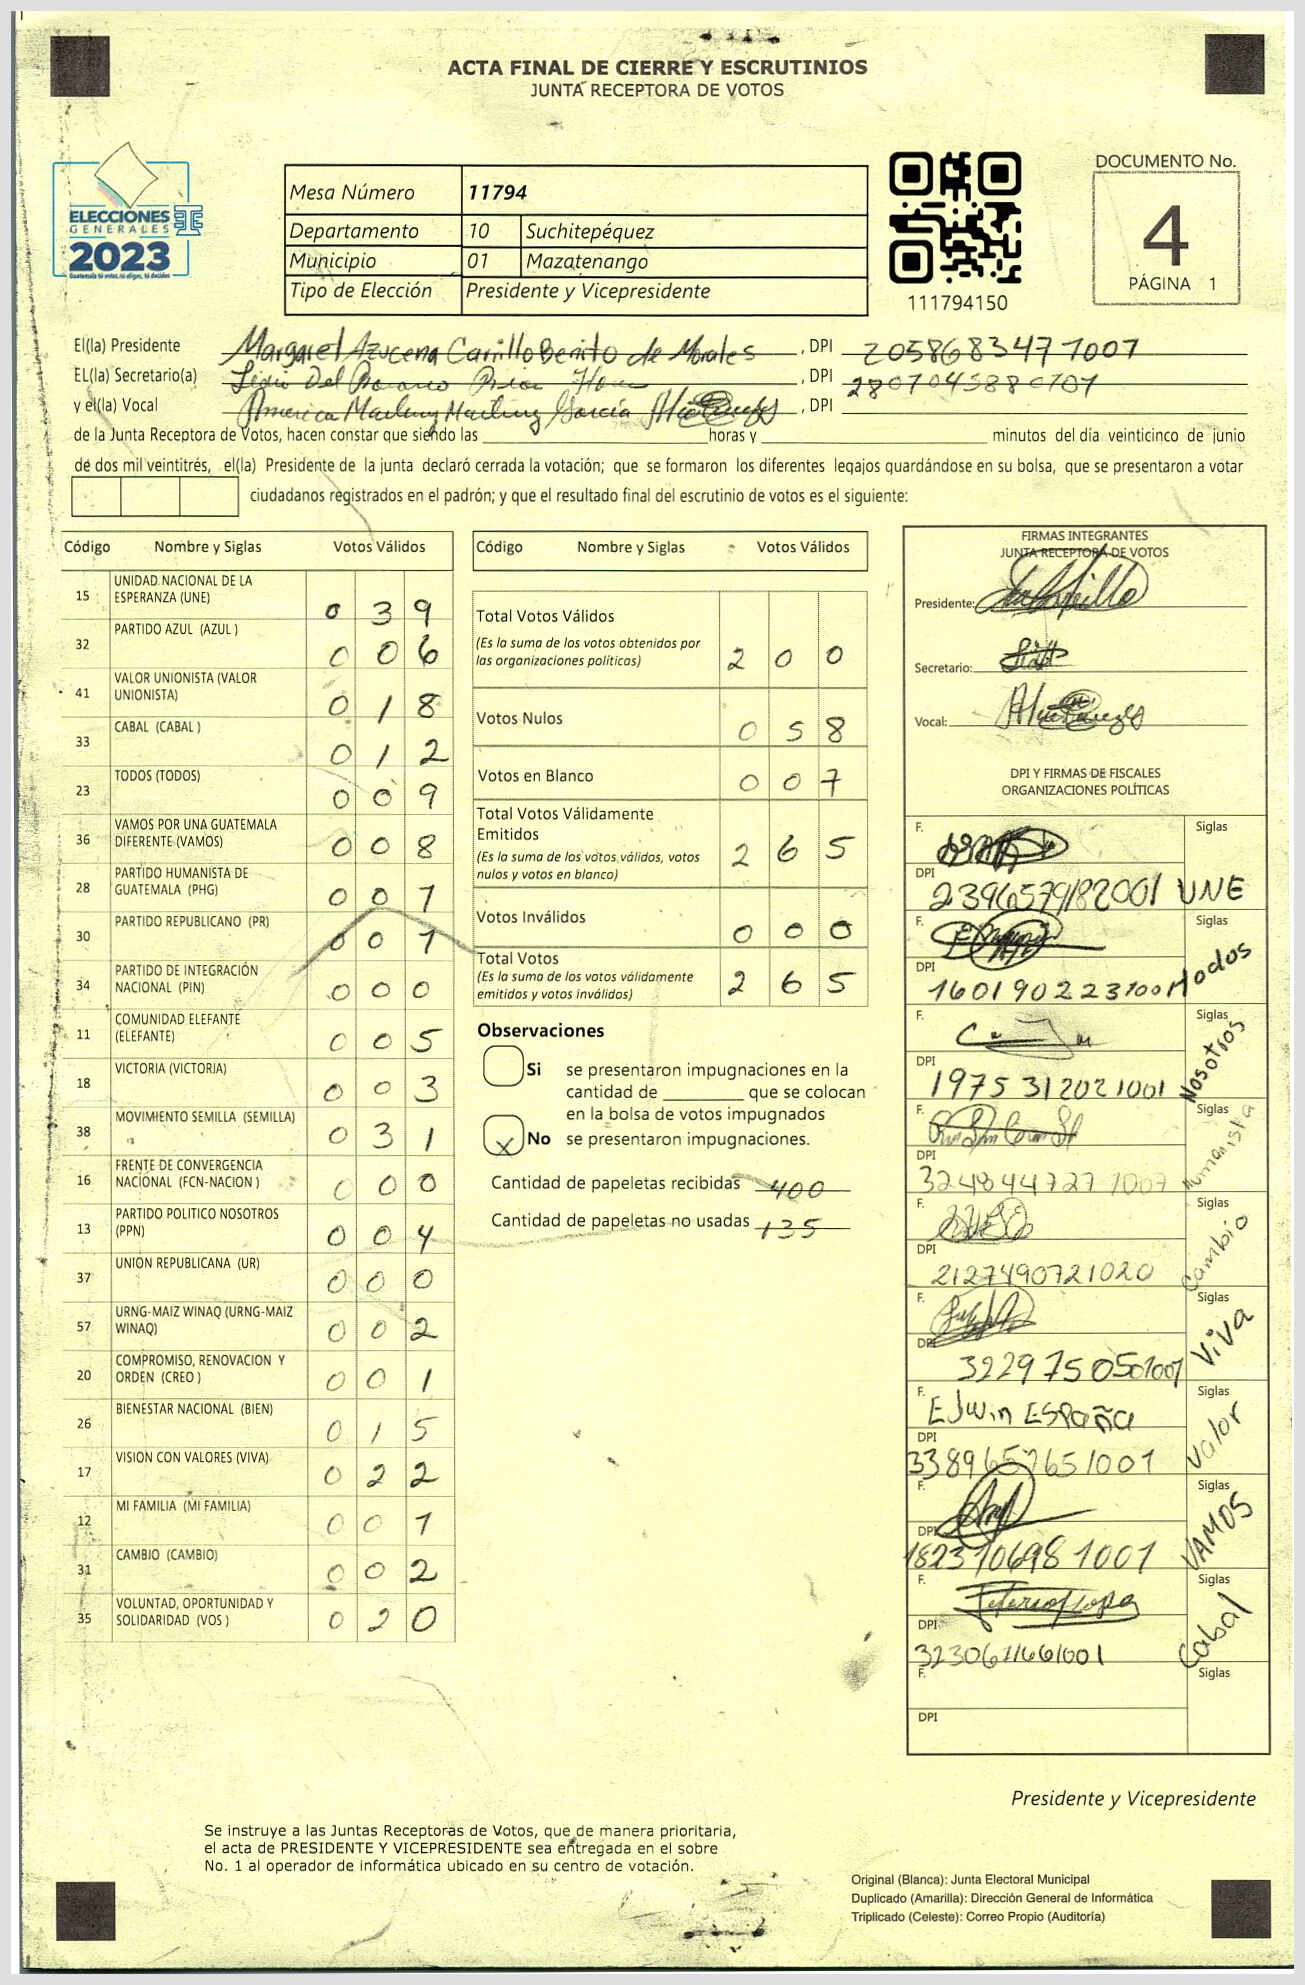 ACTA FINAL DE CIERRE Y ESCRUTINIOS
JUNTA RECEPTORA DE VOTOS
ELECCIONES
GENERALES
2023
Guatemala tú votas, tú eliges, tú decides
Mesa Número 11794
Departamento 10 Suchitepéquez
Municipio 01 Mazatenango
Tipo de Elección Presidente y Vicepresidente
111794150
DOCUMENTO No.
4
PÁGINA 1
El(la) Presidente Margaret Azucena Carrillo Benito de Morales, DPI 2058683471007
EL(la) Secretario(a) Del , DPI 2807045880707
y el(la) Vocal America García , DPI
de la Junta Receptora de Votos, hacen constar que siendo las horas y minutos del día veinticinco de junio
de dos mil veintitrés, el(la) Presidente de la junta declaró cerrada la votación; que se formaron los diferentes legajos guardándose en su bolsa, que se presentaron a votar
ciudadanos registrados en el padrón; y que el resultado final del escrutinio de votos es el siguiente:
Código Nombre y Siglas Votos Válidos
15 UNIDAD NACIONAL DE LA ESPERANZA (UNE) 0 3 9
32 PARTIDO AZUL (AZUL ) 0 0 6
41 VALOR UNIONISTA (VALOR UNIONISTA) 0 1 8
33 CABAL (CABAL ) 0 1 2
23 TODOS (TODOS) 0 0 9
36 VAMOS POR UNA GUATEMALA DIFERENTE (VAMOS) 0 0 8
28 PARTIDO HUMANISTA DE GUATEMALA (PHG) 0 0 1
30 PARTIDO REPUBLICANO (PR) 0 0 1
34 PARTIDO DE INTEGRACIÓN NACIONAL (PIN) 0 0 0
11 COMUNIDAD ELEFANTE (ELEFANTE) 0 0 5
18 VICTORIA (VICTORIA) 0 0 3
38 MOVIMIENTO SEMILLA (SEMILLA) 0 3 1
16 FRENTE DE CONVERGENCIA NACIONAL (FCN-NACION ) 0 0 0
13 PARTIDO POLITICO NOSOTROS (PPN) 0 0 4
37 UNION REPUBLICANA (UR) 0 0 0
57 URNG-MAIZ WINAQ (URNG-MAIZ WINAQ) 0 0 2
20 COMPROMISO, RENOVACION Y ORDEN (CREO ) 0 0 1
26 BIENESTAR NACIONAL (BIEN) 0 1 5
17 VISION CON VALORES (VIVA) 0 2 2
12 MI FAMILIA (MI FAMILIA) 0 0 1
31 CAMBIO (CAMBIO) 0 0 2
35 VOLUNTAD, OPORTUNIDAD Y SOLIDARIDAD (VOS ) 0 2 0
Código Nombre y Siglas Votos Válidos
Total Votos Válidos 2 0 0
(Es la suma de los votos obtenidos por
las organizaciones políticas)
Votos Nulos 0 5 8
Votos en Blanco 0 0 7
Total Votos Válidamente
Emitidos 2 6 5
(Es la suma de los votos válidos, votos
nulos y votos en blanco)
Votos Inválidos 0 0 0
Total Votos 2 6 5
(Es la suma de los votos válidamente
emitidos y votos inválidos)
Observaciones
Si se presentaron impugnaciones en la
cantidad de que se colocan
en la bolsa de votos impugnados
X No se presentaron impugnaciones.
Cantidad de papeletas recibidas 400
Cantidad de papeletas no usadas 135
FIRMAS INTEGRANTES
JUNTA RECEPTORA DE VOTOS
Presidente:
Secretario:
Vocal:
DPI Y FIRMAS DE FISCALES
ORGANIZACIONES POLÍTICAS
F. Siglas
DPI
2396579182001 UNE
F. Siglas
DPI
1601902231001 todos
F. Siglas
DPI
1975312021001 Nosotros
F. Siglas
DPI
3248447271007 Humanista
F. Siglas
DPI
2127490721020 Cambio
F. Siglas
DPI
3229750501007 Viva
F. Edwin España Siglas
DPI
3389657651001 Valor
F. Siglas
DPI
1823706981001 VAMOS
F. Siglas
DPI
3230671661001 Cabal
F. Siglas
DPI
Presidente y Vicepresidente
Se instruye a las Juntas Receptoras de Votos, que de manera prioritaria,
el acta de PRESIDENTE Y VICEPRESIDENTE sea entregada en el sobre
No. 1 al operador de informática ubicado en su centro de votación.
Original (Blanca): Junta Electoral Municipal
Duplicado (Amarilla): Dirección General de Informática
Triplicado (Celeste): Correo Propio (Auditoría)